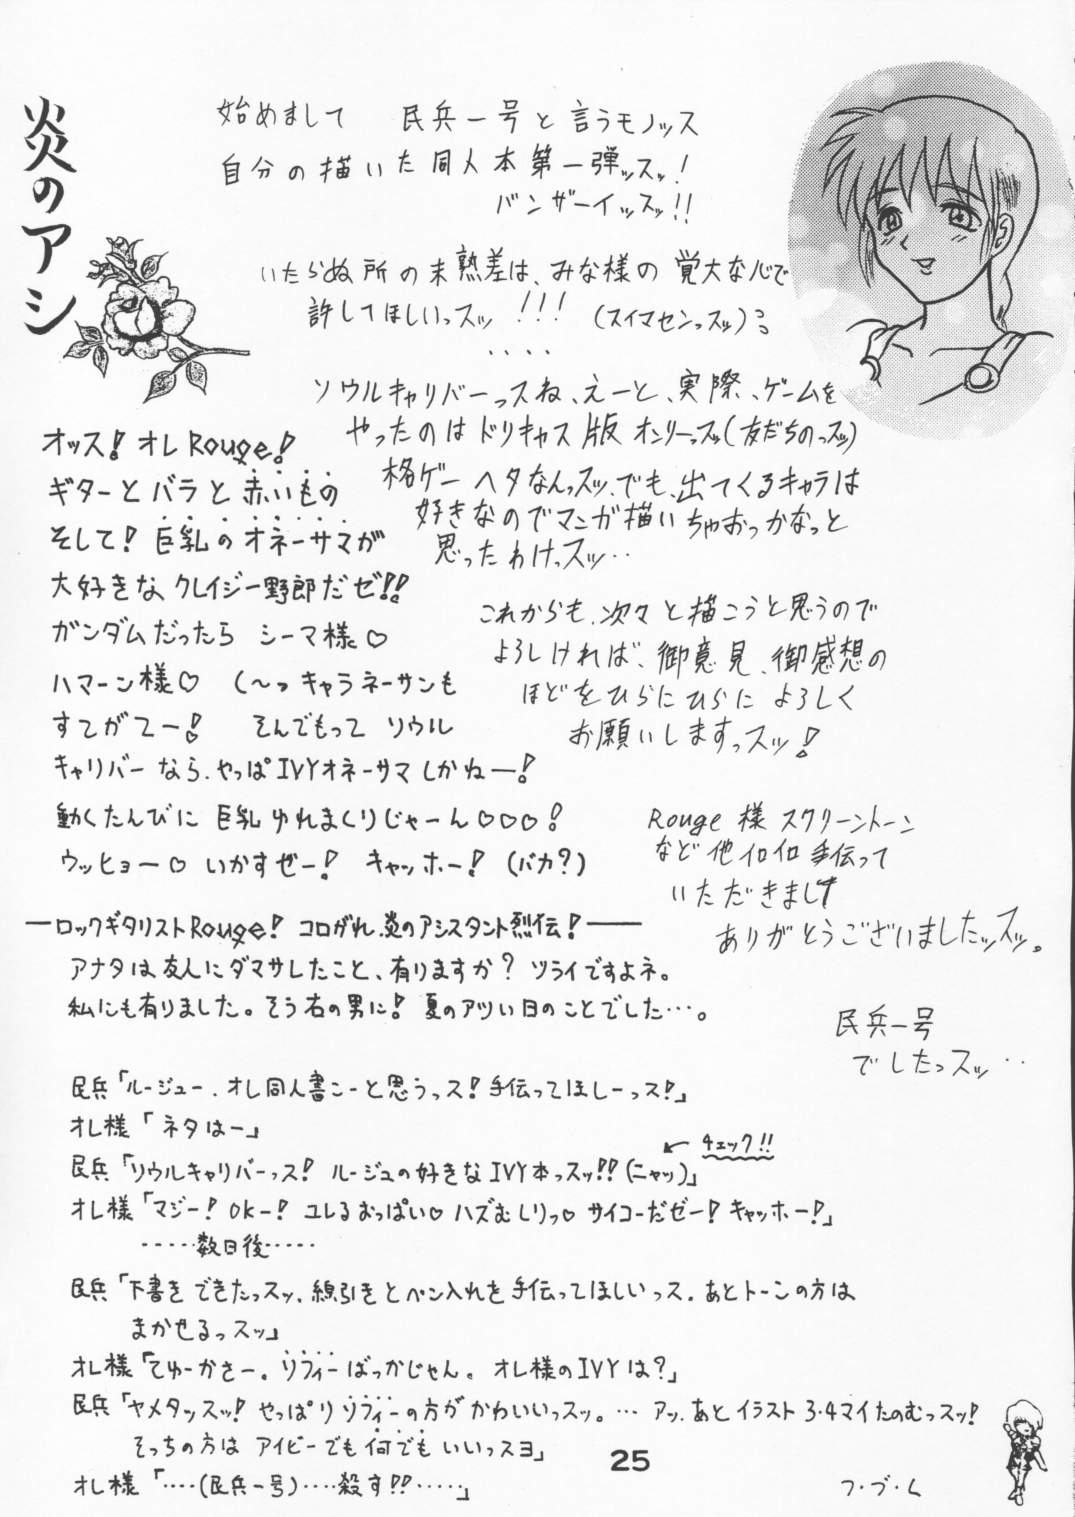 炎のアシ
始めまして 民兵一号と言うモノッス
自分の描いた同人本第一弾ッスッ!
バンザーイッスッ!!
いたらぬ所の未熟差は、みな様の覚大な心で
許してほしいっスッ!!! (スイマセンっスッ)
‥‥
ソウルキャリバーっスね、えーと、実際、ゲームを
やったのはドリキャス版オンリーっスッ(友だちのっスッ)
格ゲーヘタなんっスッ、でも、出てくるキャラは
好きなのでマンガ描いちゃおっかなっと
思ったわけっスッ‥
これからも、次々と描こうと思うので
よろしければ、御意見、御感想の
ほどをひらにひらによろしく
お願いしますっスッ!
Rouge様 スクリーントーン
など他イロイロ手伝って
いただきまして
ありがとうございましたッスッ。
民兵一号
でしたっスッ‥
オッス!オレRouge!
ギターとバラと赤いもの
そして!巨乳のオネーサマが
大好きなクレイジー野郎だゼ!!
ガンダムだったら シーマ様♡
ハマーン様♡ (〜っキャラネーサンも
すてがてー! そんでもって ソウル
キャリバーなら、やっぱIVYオネーサマしかねー!
動くたんびに 巨乳ゆれまくりじゃーん♡♡♡!
ウッヒョー♡ いかすぜー! キャッホー! (バカ?)
―ロックギタリストRouge! コロがれ、炎のアシスタント烈伝!――
アナタは友人にダマサレたこと、有りますか? ツライですよネ。
私にも有りました。そう右の男に! 夏のアツい日のことでした…。
民兵「ルージュー、オレ同人書こーと思うっス!手伝ってほしーっス!」
オレ様「ネタはー」
← チェック!!
民兵「ソウルキャリバーっス! ルージュの好きなIVY本っスッ!!(ニヤッ)」
オレ様「マジー!OKー! ユレるおっぱい♡ ハズむしりっ♡ サイコーだゼー! キャッホー!」
‥‥‥数日後‥‥‥
民兵「下書きできたっスッ、線引きとペン入れを手伝ってほしいっス、あとトーンの方は
まかせるっスッ」
オレ様「てゆーかさー。ソフィーばっかじゃん。オレ様のIVYは?」
民兵「ヤメタッスッ! やっぱりソフィーの方がかわいいっスッ。…アッ、あとイラスト3・4マイたのむっスッ!
そっちの方はアイビーでも何でもいいっスヨ」
オレ様「‥‥(民兵一号)‥‥殺す!!‥‥‥」
25
フ・ブ・く